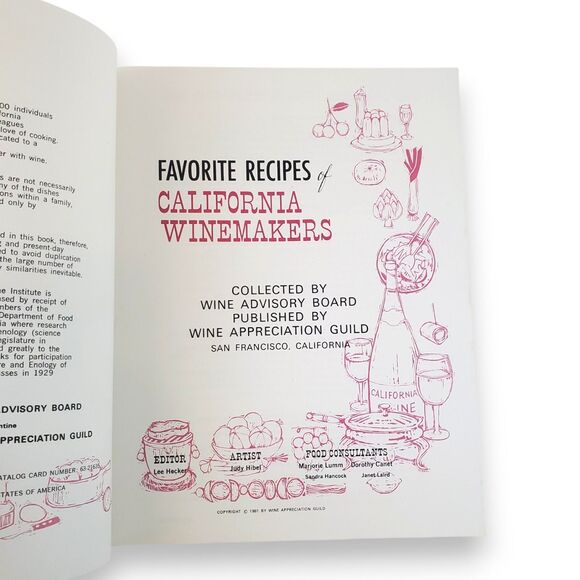 00 individuals
fornia
eagues
love of cooking.
cated to a
er with wine.
s are not necessarily
ny of the dishes
ons within a family,
d only by
d in this book, therefore,
g and present-day
ed to avoid duplication
the large number of
y similarities inevitable.
ne Institute is
sed by receipt of
mbers of the
Department of Food
ia where research
enology (science
egislature in
d greatly to the
ks for participation
re and Enology of
sses in 1929
ADVISORY BOARD
ntine
APPRECIATION GUILD
ATALOG CARD NUMBER: 63-21635
STATES OF AMERICA
FAVORITE RECIPES of
CALIFORNIA
WINEMAKERS
COLLECTED BY
WINE ADVISORY BOARD
PUBLISHED BY
WINE APPRECIATION GUILD
SAN FRANCISCO, CALIFORNIA
CALIFORNIA
WINE
EDITOR
Lee Hecker
ARTIST
Judy Hibel
FOOD CONSULTANTS
Marjorie Lumm Dorothy Canet
Sandra Hancock Janet Laird
COPYRIGHT © 1981 BY WINE APPRECIATION GUILD